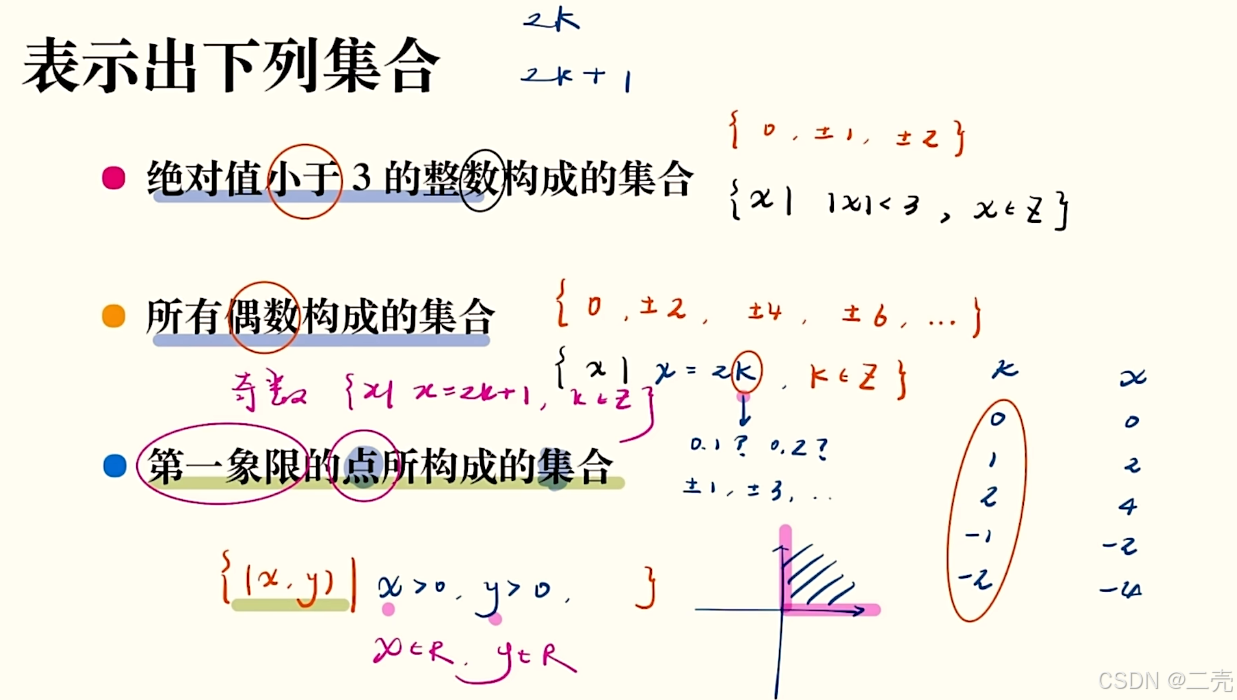 2k
表示出下列集合
2k+1
{0, ±1, ±2}
绝对值小于 3 的整数构成的集合
{x| |x|<3, x∈Z}
所有偶数构成的集合
{0, ±2, ±4, ±6, ...}
{x| x=2k, k∈Z}
奇数 {x| x=2k+1, k∈Z}
k x
0 0
1 2
2 4
-1 -2
-2 -4
0.1? 0.2?
±1, ±3, ..
第一象限的点所构成的集合
{(x,y)| x>0, y>0, }
x∈R, y∈R
CSDN @二壳